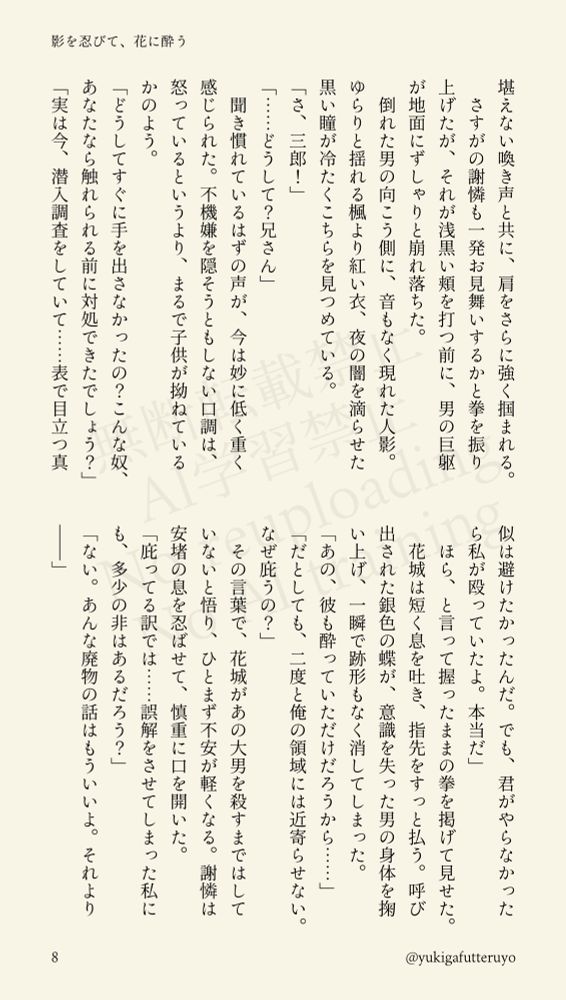 影を忍びて、花に酔う
堪えない喚き声と共に、肩をさらに強く掴まれる。
さすがの謝憐も一発お見舞いするかと拳を振り
上げたが、それが浅黒い頬を打つ前に、男の巨躯
が地面にずしゃりと崩れ落ちた。
倒れた男の向こう側に、音もなく現れた人影。
ゆらりと揺れる楓より紅い衣、夜の闇を滴らせた
黒い瞳が冷たくこちらを見つめている。
「さ、三郎！」
「……どうして？兄さん」
聞き慣れているはずの声が、今は妙に低く重く
感じられた。不機嫌を隠そうともしない口調は、
怒っているというより、まるで子供が拗ねている
かのよう。
「どうしてすぐに手を出さなかったの？こんな奴、
あなたなら触れられる前に対処できたでしょう？」
「実は今、潜入調査をしていて……表で目立つ真
似は避けたかったんだ。でも、君がやらなかった
ら私が殴っていたよ。本当だ」
ほら、と言って握ったままの拳を掲げて見せた。
花城は短く息を吐き、指先をすっと払う。呼び
出された銀色の蝶が、意識を失った男の身体を掬
い上げ、一瞬で跡形もなく消してしまった。
「あの、彼も酔っていただけだろうから……」
「だとしても、二度と俺の領域には近寄らせない。
なぜ庇うの？」
その言葉で、花城があの大男を殺すまではして
いないと悟り、ひとまず不安が軽くなる。謝憐は
安堵の息を忍ばせて、慎重に口を開いた。
「庇ってる訳では……誤解をさせてしまった私に
も、多少の非はあるだろう？」
「ない。あんな廃物の話はもういいよ。それより
――」
無断転載禁止
AI学習禁止
No reuploading
No AI training
8
@yukigafutteruyo